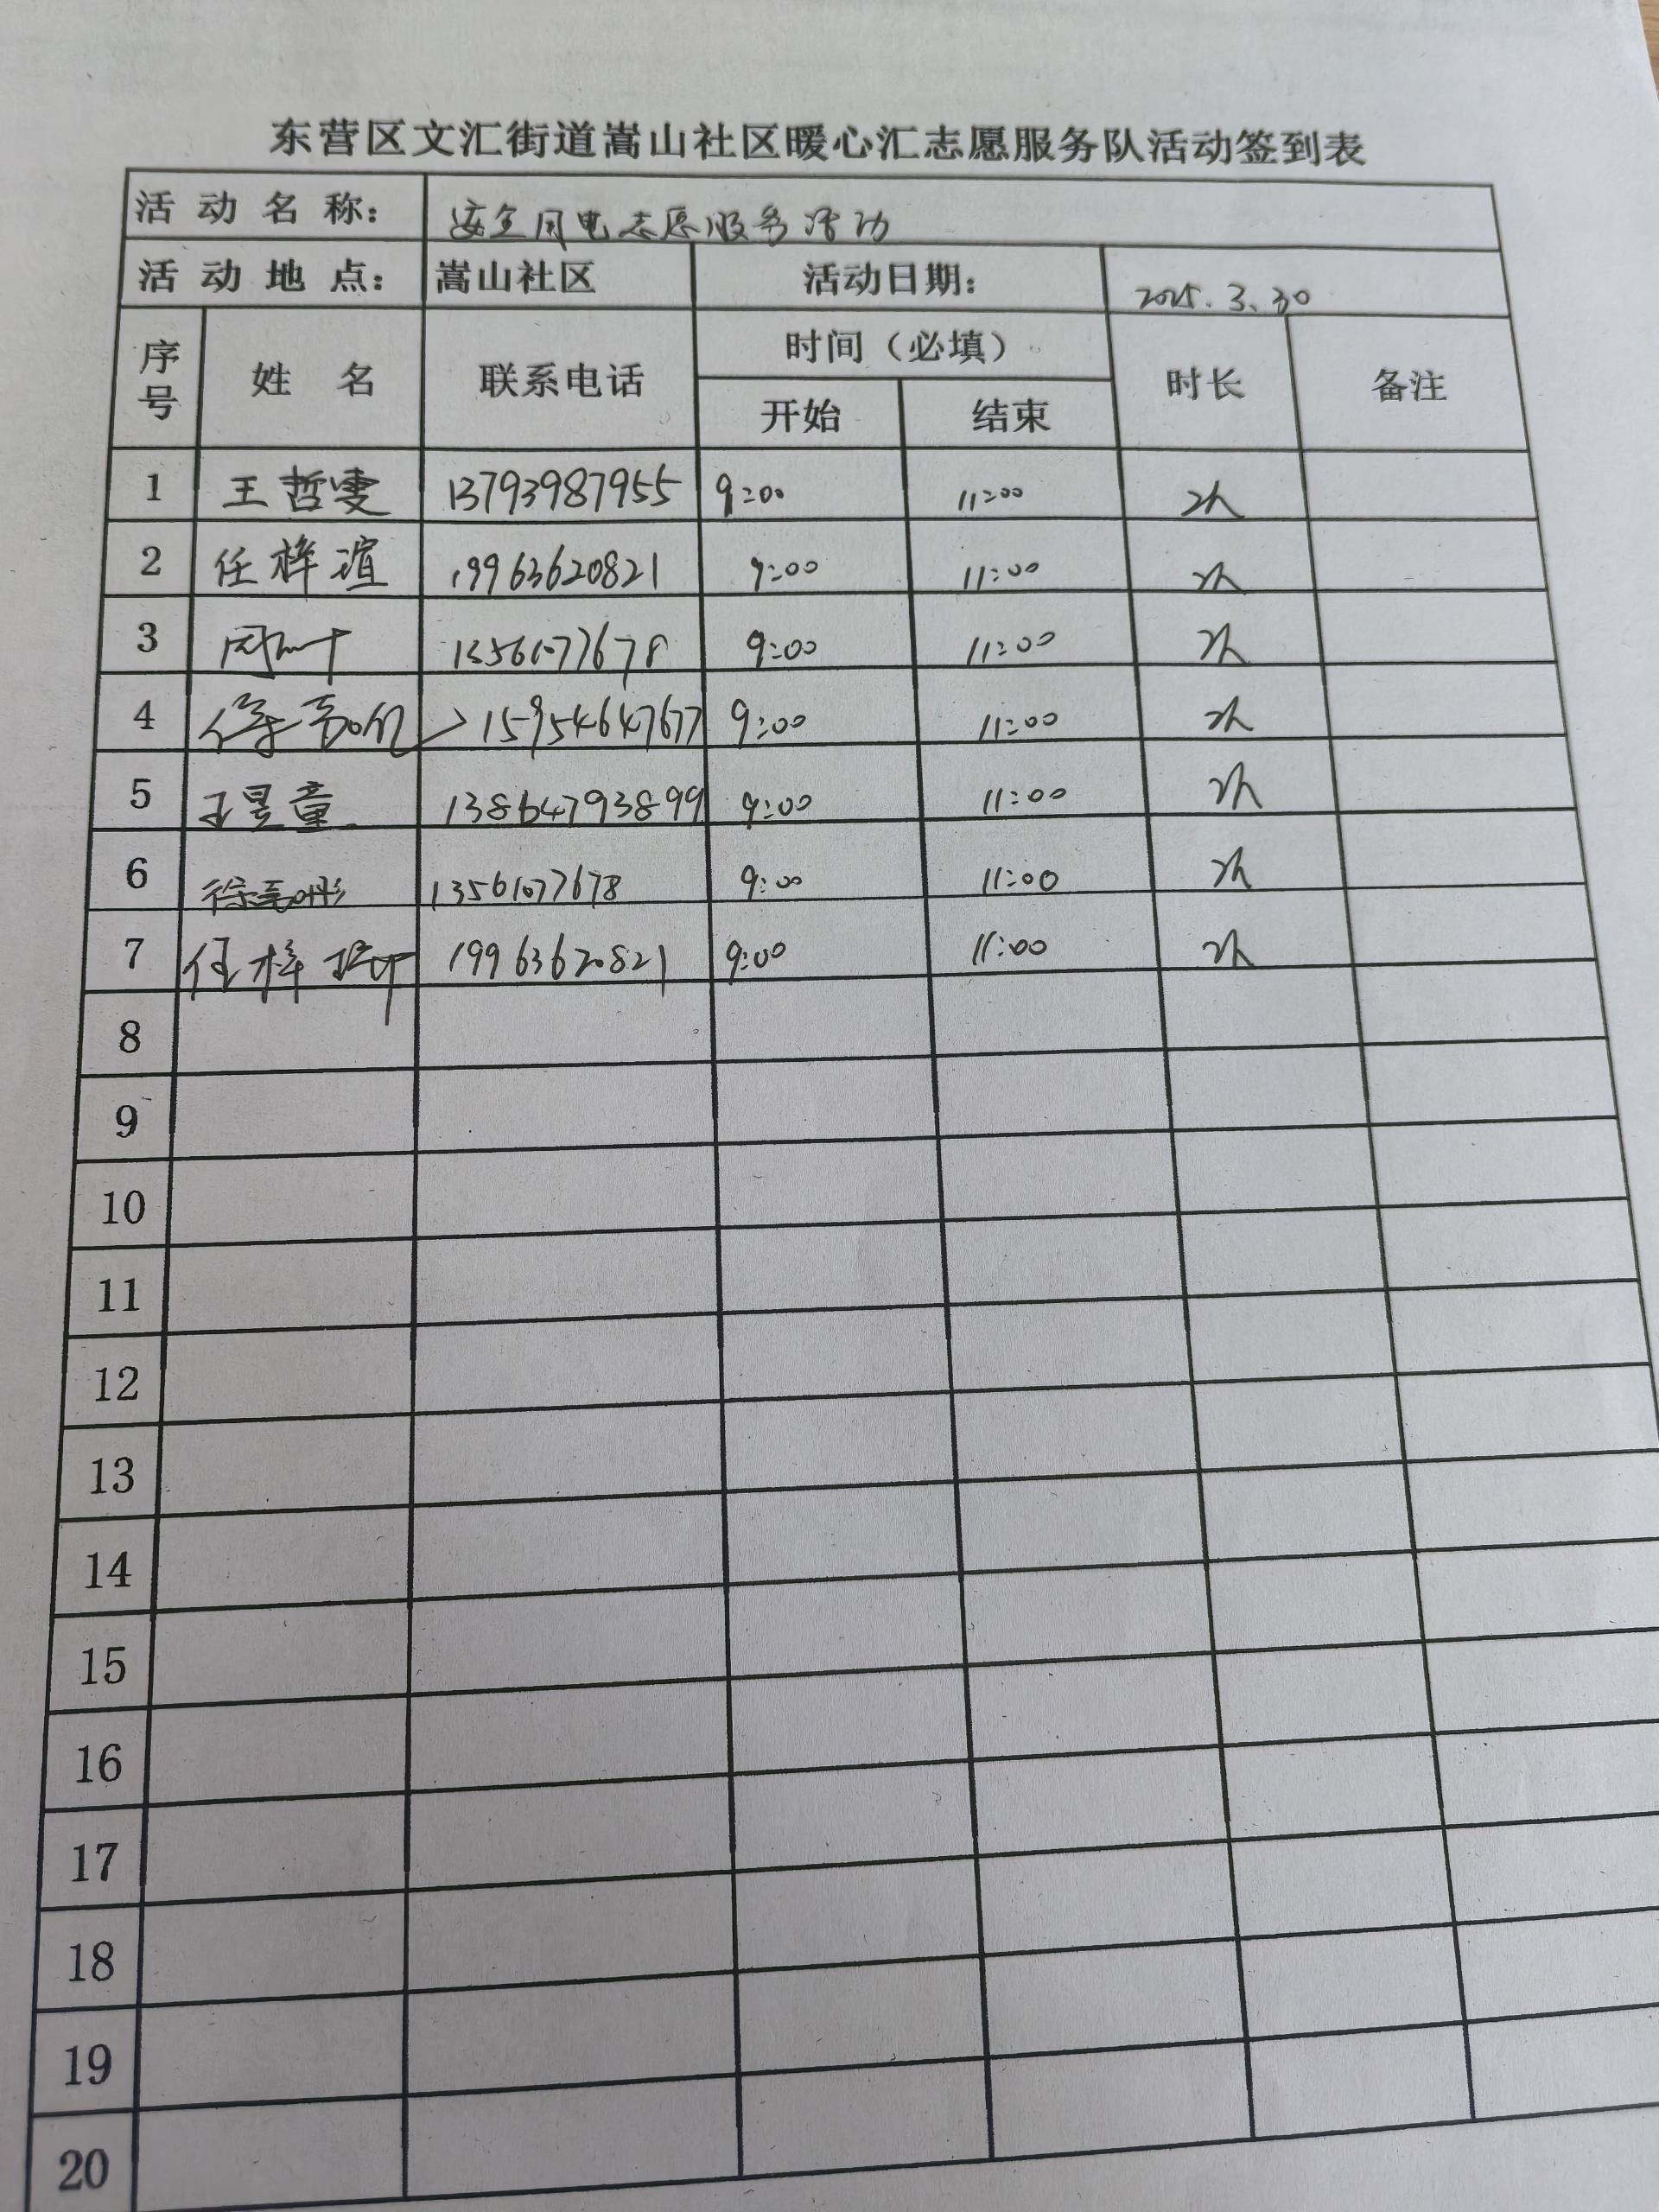 东营区文汇街道嵩山社区暖心汇志愿服务队活动签到表
活动名称： 安全用电志愿服务活动
活动地点： 嵩山社区 活动日期： 2025.3.30
序号 姓名 联系电话 时间（必填） 时长 备注
开始 结束
1 王哲雯 13793987955 9:00 11:00 2h
2 任梓瑄 19963620821 9:00 11:00 2h
3 13561077678 9:00 11:00 2h
4 15954647677 9:00 11:00 2h
5 王昱童 13864793899 9:00 11:00 2h
6 13561077678 9:00 11:00 2h
7 任梓 19963620821 9:00 11:00 2h
8
9
10
11
12
13
14
15
16
17
18
19
20